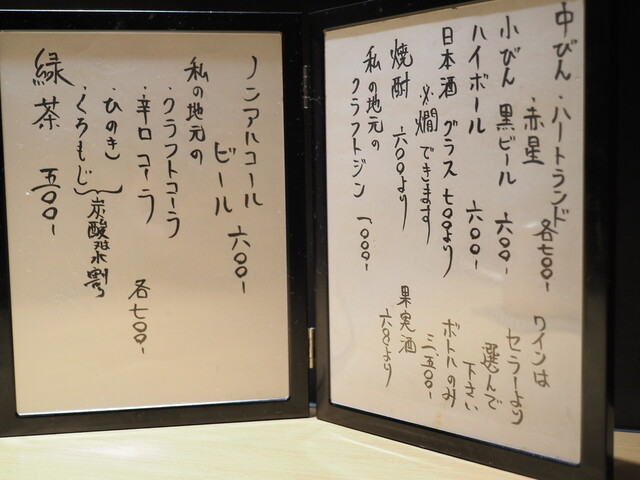 中びん・ハートランド
・赤星
各七〇〇-
小びん 黒ビール 六〇〇-
ハイボール 六〇〇-
日本酒 グラス 七〇〇より
※燗できます
焼酎 六〇〇より
私の地元の
クラフトジン 一〇〇〇-
ワインは
セラーより
選んで
下さい
ボトルのみ
三、五〇〇-
果実酒
六〇〇より
ノンアルコール
ビール 六〇〇-
私の地元の
・クラフトコーラ
・辛口コーラ
・ひのき
・くろもじ
炭酸水割り
各七〇〇-
緑茶 五〇〇-